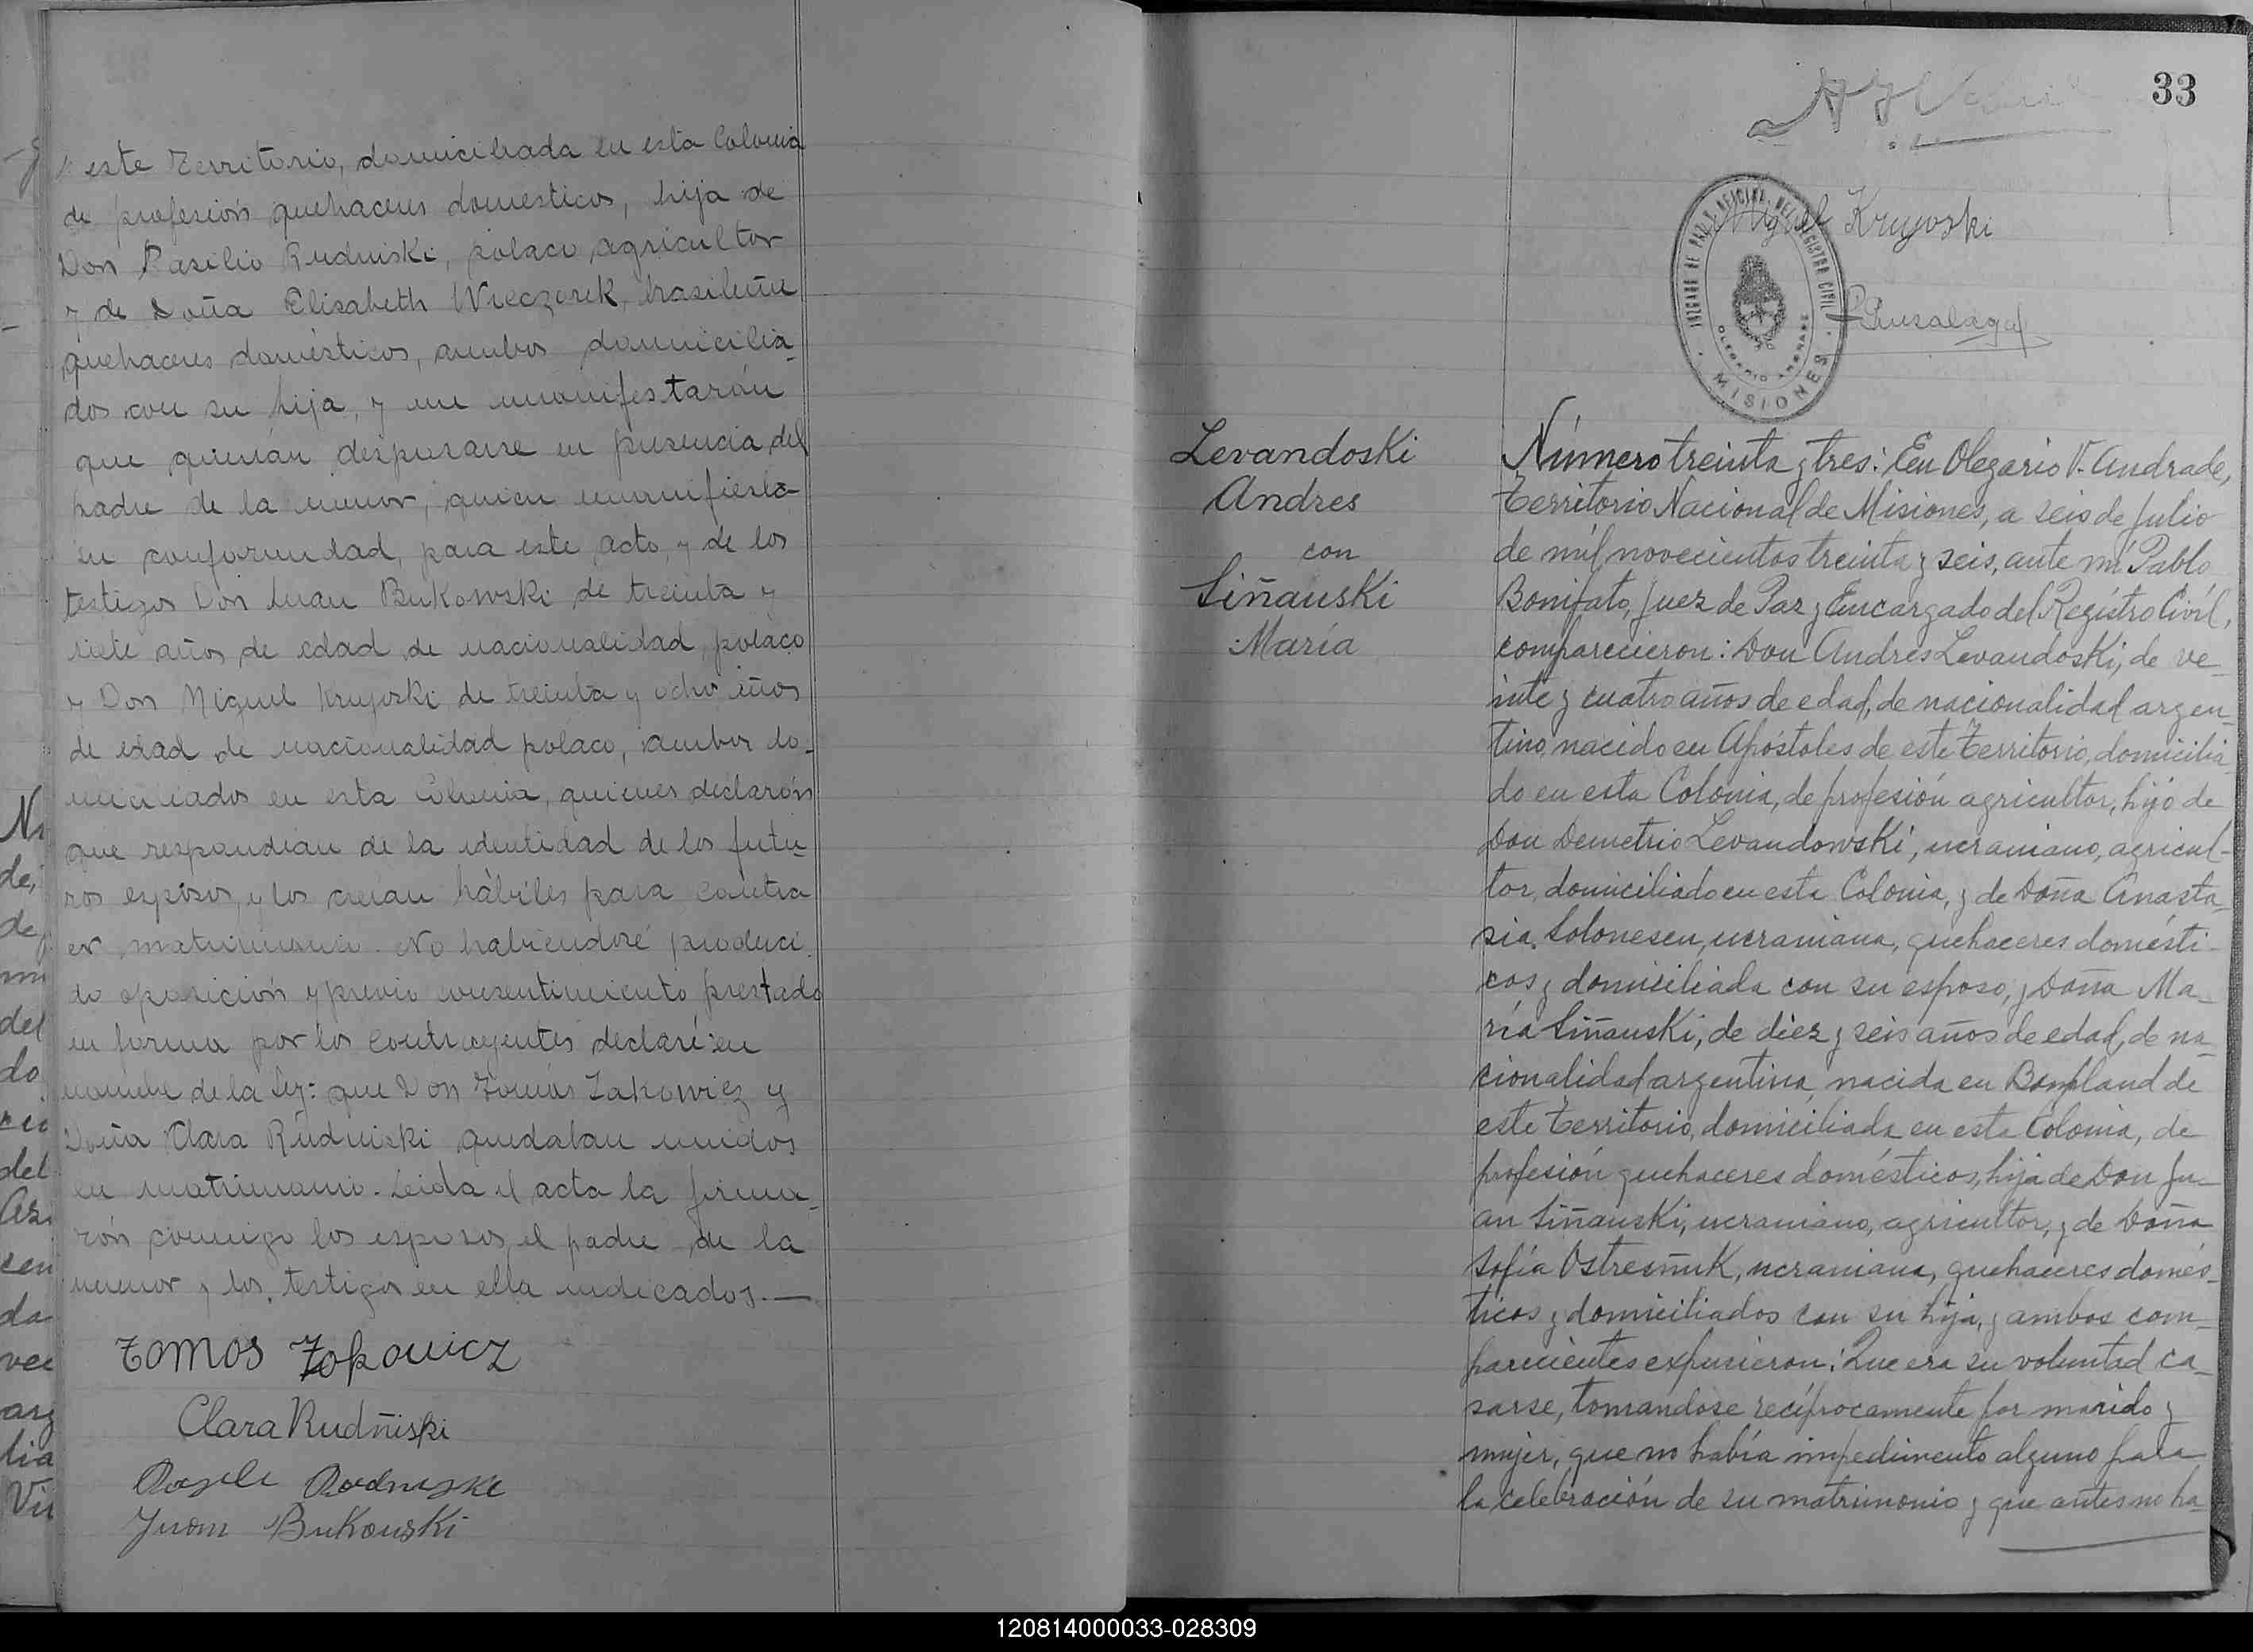 este Territorio, domiciliada en esta Colonia
de profesión quehaceres domesticos, hija de
Don Basilio Rudniski, polaco agricultor
y de Doña Elisabeth Wieczorek, brasileña
quehaceres domésticos, ambos domicilia-
dos con su hija, y me manifestarón
que querían desposarse en presencia del
padre de la menor, quien manifiesta
su conformidad, para este acto, y de los
testigos Don Juan Bukowski de treinta y
siete años de edad de nacionalidad polaco
y Don Miguel Kruyoski de treinta y ocho años
de edad de nacionalidad polaco, ambos do-
miciliados en esta Colonia, quienes declarón
que respondian de la identidad de los futu-
ros esposos, y los creian hábiles para contra
er matrimonio. No habiendosé produci-
do oposición y previo consentimiento prestado
en forma por los contrayentes declaré en
nombre de la Ley: que Don Tomás Zakowicz y
Doña Clara Rudniski quedaban unidos
en matrimonio. Leida el acta la firma-
rón conmigo los esposos, el padre de la
menor y los testigos en ella indicados.—
Tomos Zokowicz
Clara Rudñiski
Rudniske
Juan Bukouski
33
Miguel Kruyoski
JUZGADO DE PAZ Y OFICINA DEL REGISTRO CIVIL
OLEGARIO ANDRADE
MISIONES
Levandoski
Andres
con
Siñauski
María
Número treinta y tres: En Olegario V. Andrade,
Territorio Nacional de Misiones, a seis de Julio
de mil novecientos treinta y seis, ante mí Pablo
Bonifato, Juez de Paz y Encargado del Regístro Civíl,
comparecieron: Don Andrés Levandoski, de ve-
inte y cuatro años de edad, de nacionalidad argen-
tino, nacido en Apóstoles de este Territorio, domicilia-
do en esta Colonia, de profesión agricultor, hijo de
Don Demetrio Levandowski, ucraniano, agricul-
tor, domiciliado en esta Colonia, y de Doña Anasta-
sia Solonesen, ucraniana, quehaceres domésti-
cos y domiciliada con su esposo, y Doña Ma-
ría Siñauski, de diez y seis años de edad, de na-
cionalidad argentina, nacida en Bompland de
este Territorio, domiciliada en esta Colonia, de
profesión quehaceres domésticos, hija de Don Ju-
an Siñauski, ucraniano, agricultor, y de Doña
Sofía Ostresñuk, ucraniana, quehaceres domés-
ticos y domiciliados con su hija, y ambos com-
parecientes expusieron: Que era su voluntad ca-
sarse, tomandose recíprocamente por marido y
mujer, que no había impedimento alguno para
la celebración de su matrimonio y que antes no ha-
120814000033-028309